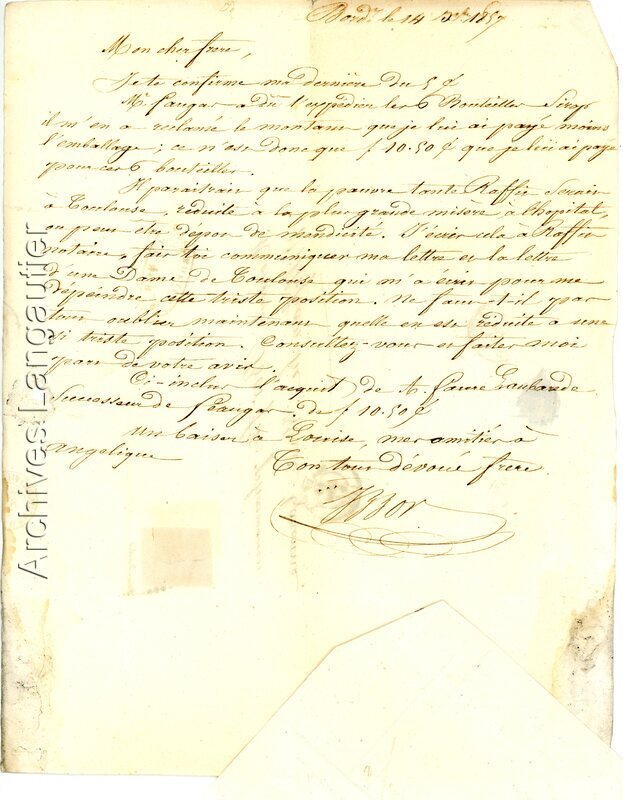 Bordx le 14 Xbre 1857
Mon cher frere,
Je te confirme ma dernière du 5 ct
Mr faugas a dû t'expédier les 6 Bouteilles Sirop
il m'en a reclamé le montant que je lui ai payé moins
l'emballage; ce n'est donc que f 10.50 ct que je lui ai payé
pour ces 6 bouteilles.
Il paraitrait que la pauvre tante Raffit
à Toulouse, reduite à la plus grande misère à l'hopital,
ou peut etre depot de mendicité. J'écris cela à Raffit
notaire, fais toi communiquer ma lettre et la lettre
d'une Dame de Toulouse qui m'a écrit pour me
dépeindre cette triste position. Ne faut-il pas
tout oublier maintenant quelle en est réduite à une
si triste position. Consultez-vous et faites moi
part de votre avis.
Ci-inclus l'acquit de faure
Successeur de faugas, de f 10.50 ct
Un baiser à Louise, mes amitiés à
angelique
Ton tout dévoué frere
Archives Langautier